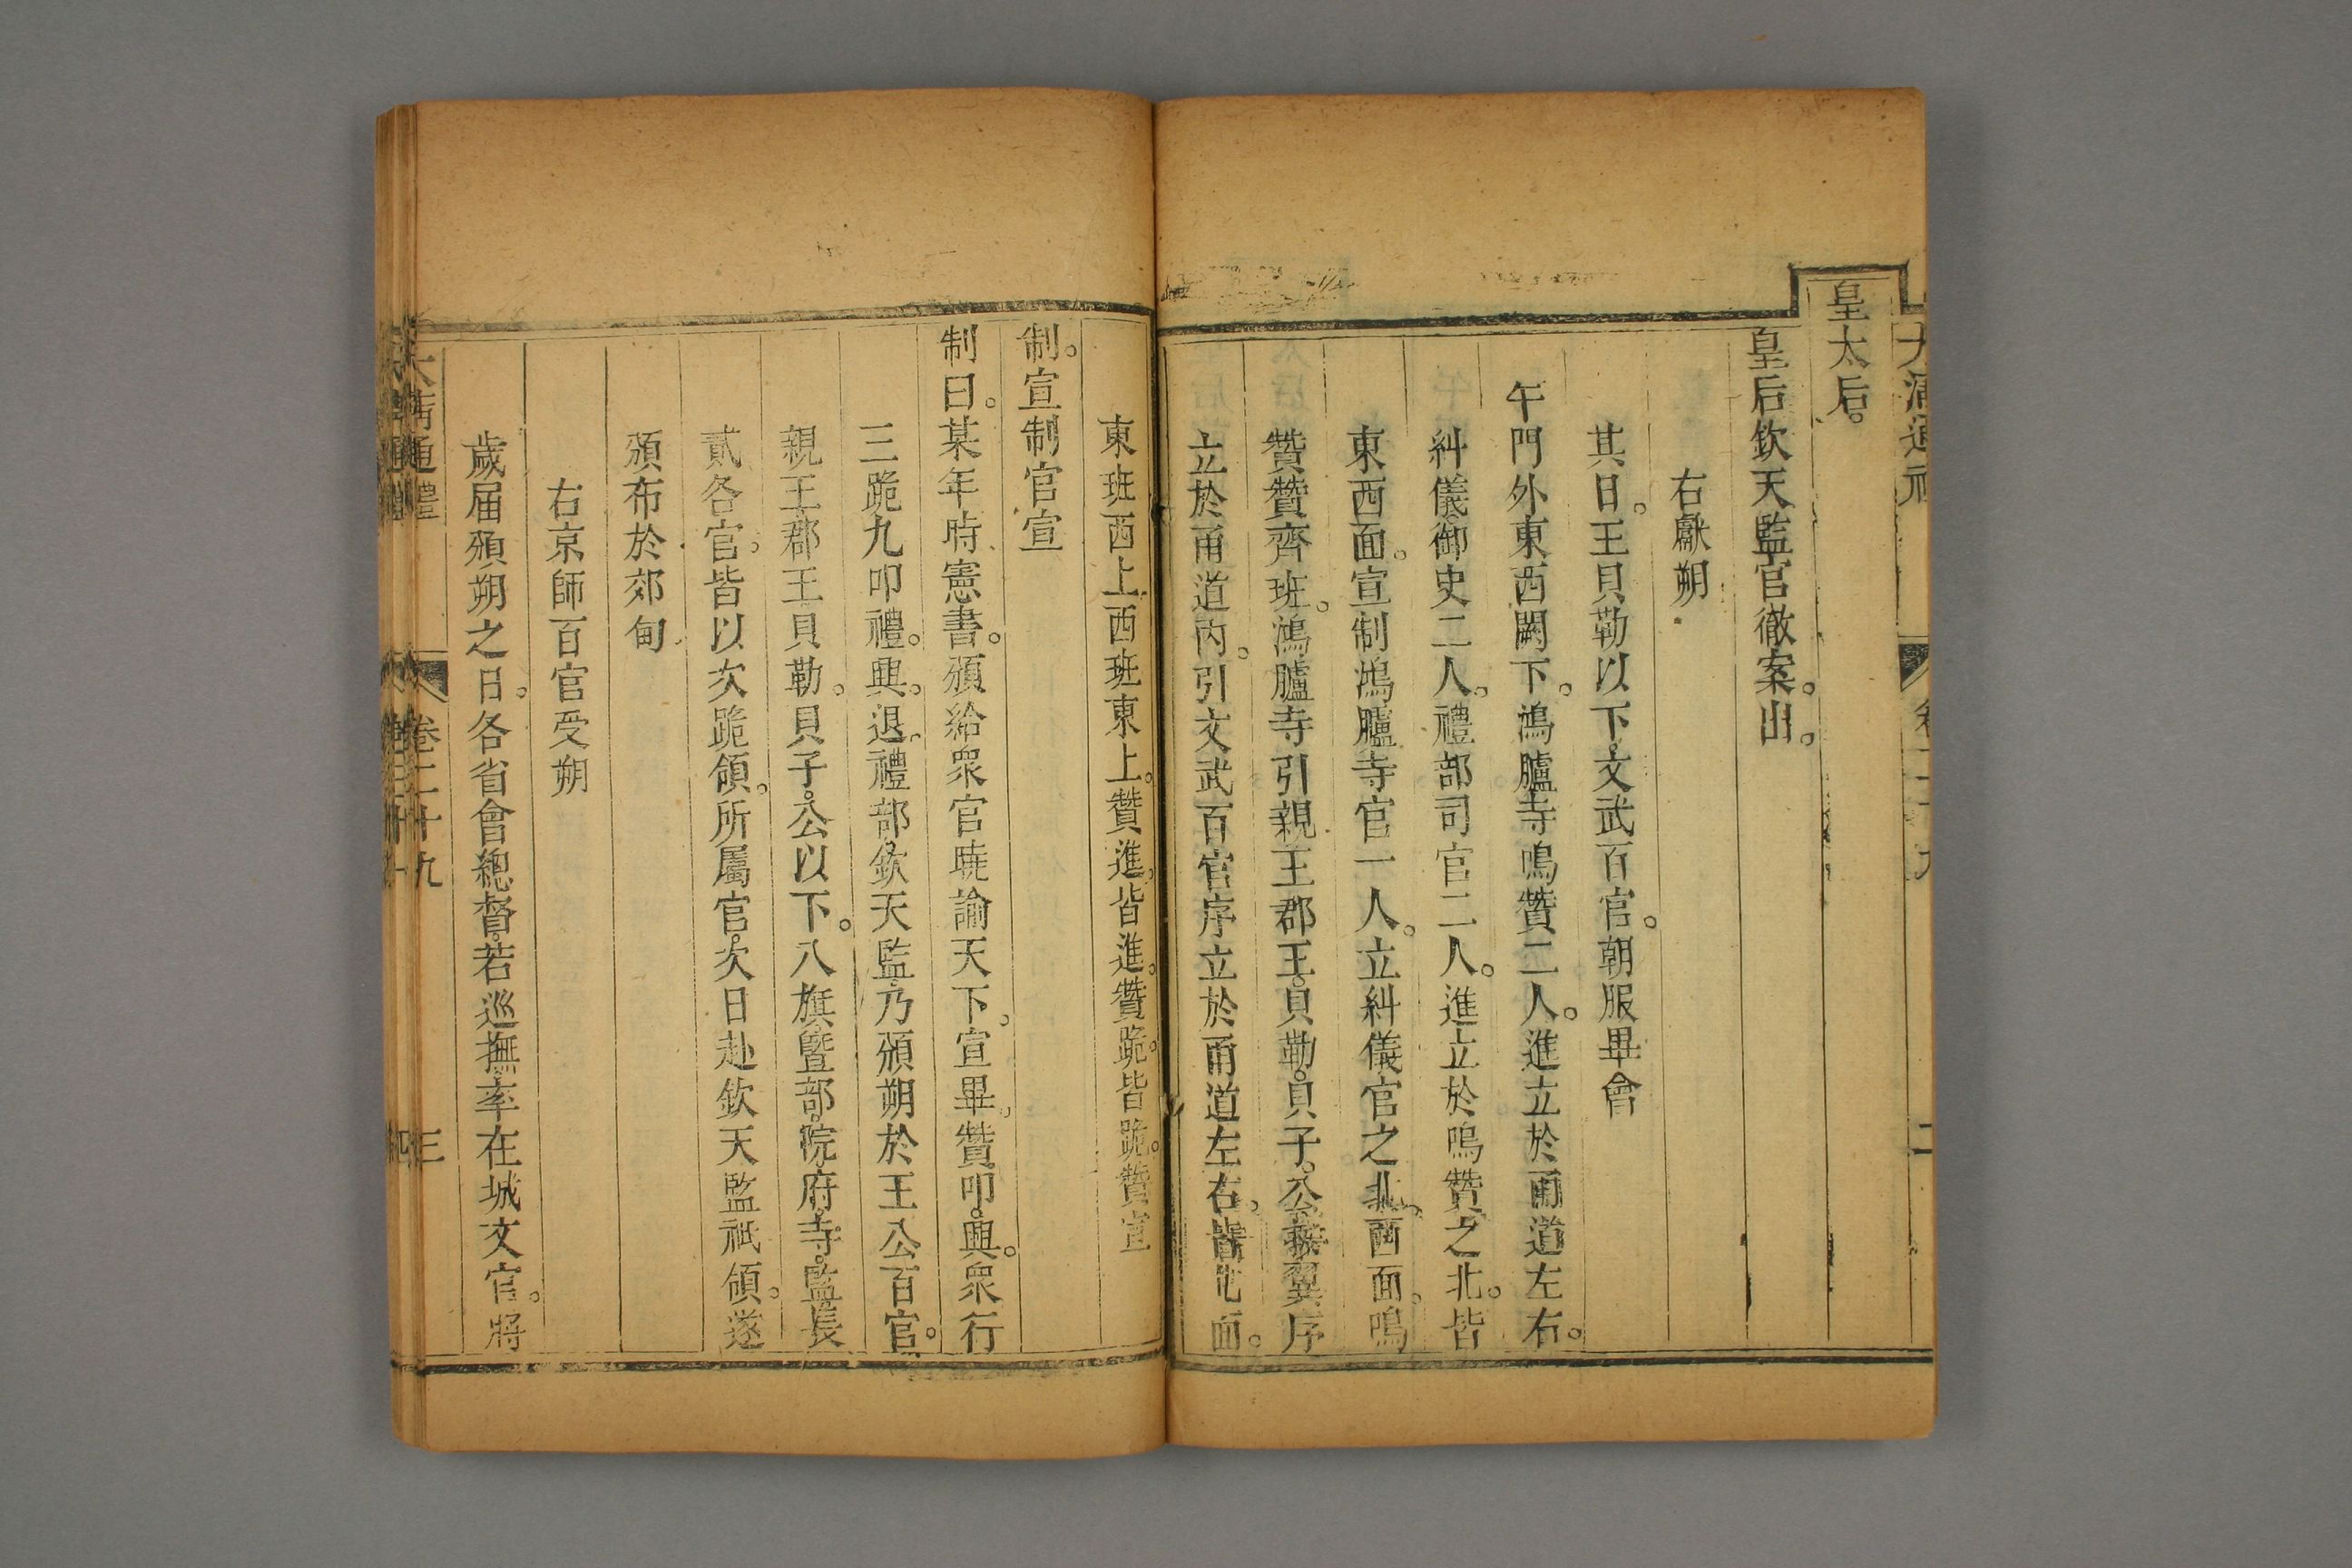 皇太后。
皇后欽天監官徹案。出。
右獻朔
其日。王貝勒以下。文武百官。朝服畢會
午門外東西闕下。鴻臚寺鳴贊二人。進立於甬道左右。
糾儀御史二人。禮部司官二人。進立於鳴贊之北。皆
東西面。宣制鴻臚寺官一人。立糾儀官之北。西面。鳴
贊贊齊班。鴻臚寺引親王郡王。貝勒。貝子。公。按翼序
立於甬道內。引文武百官序立於甬道左右。皆北面。
東班西上。西班東上。贊進。皆進。贊跪。皆跪。贊宣
制。宣制官宣
制曰。某年時憲書。頒給衆官曉諭天下。宣畢。贊叩。興。衆行
三跪九叩禮。興。退。禮部。欽天監。乃頒朔於王公百官。
親王郡王貝勒。貝子。公以下。八旗曁部。院。府。寺。監。長
貳各官。皆以次跪領。所屬官。次日赴欽天監祇領。遂
頒布於郊甸
右京師百官受朔
歲届頒朔之日。各省會總督。若巡撫。率在城文官。將
大清通禮 卷二十九 三